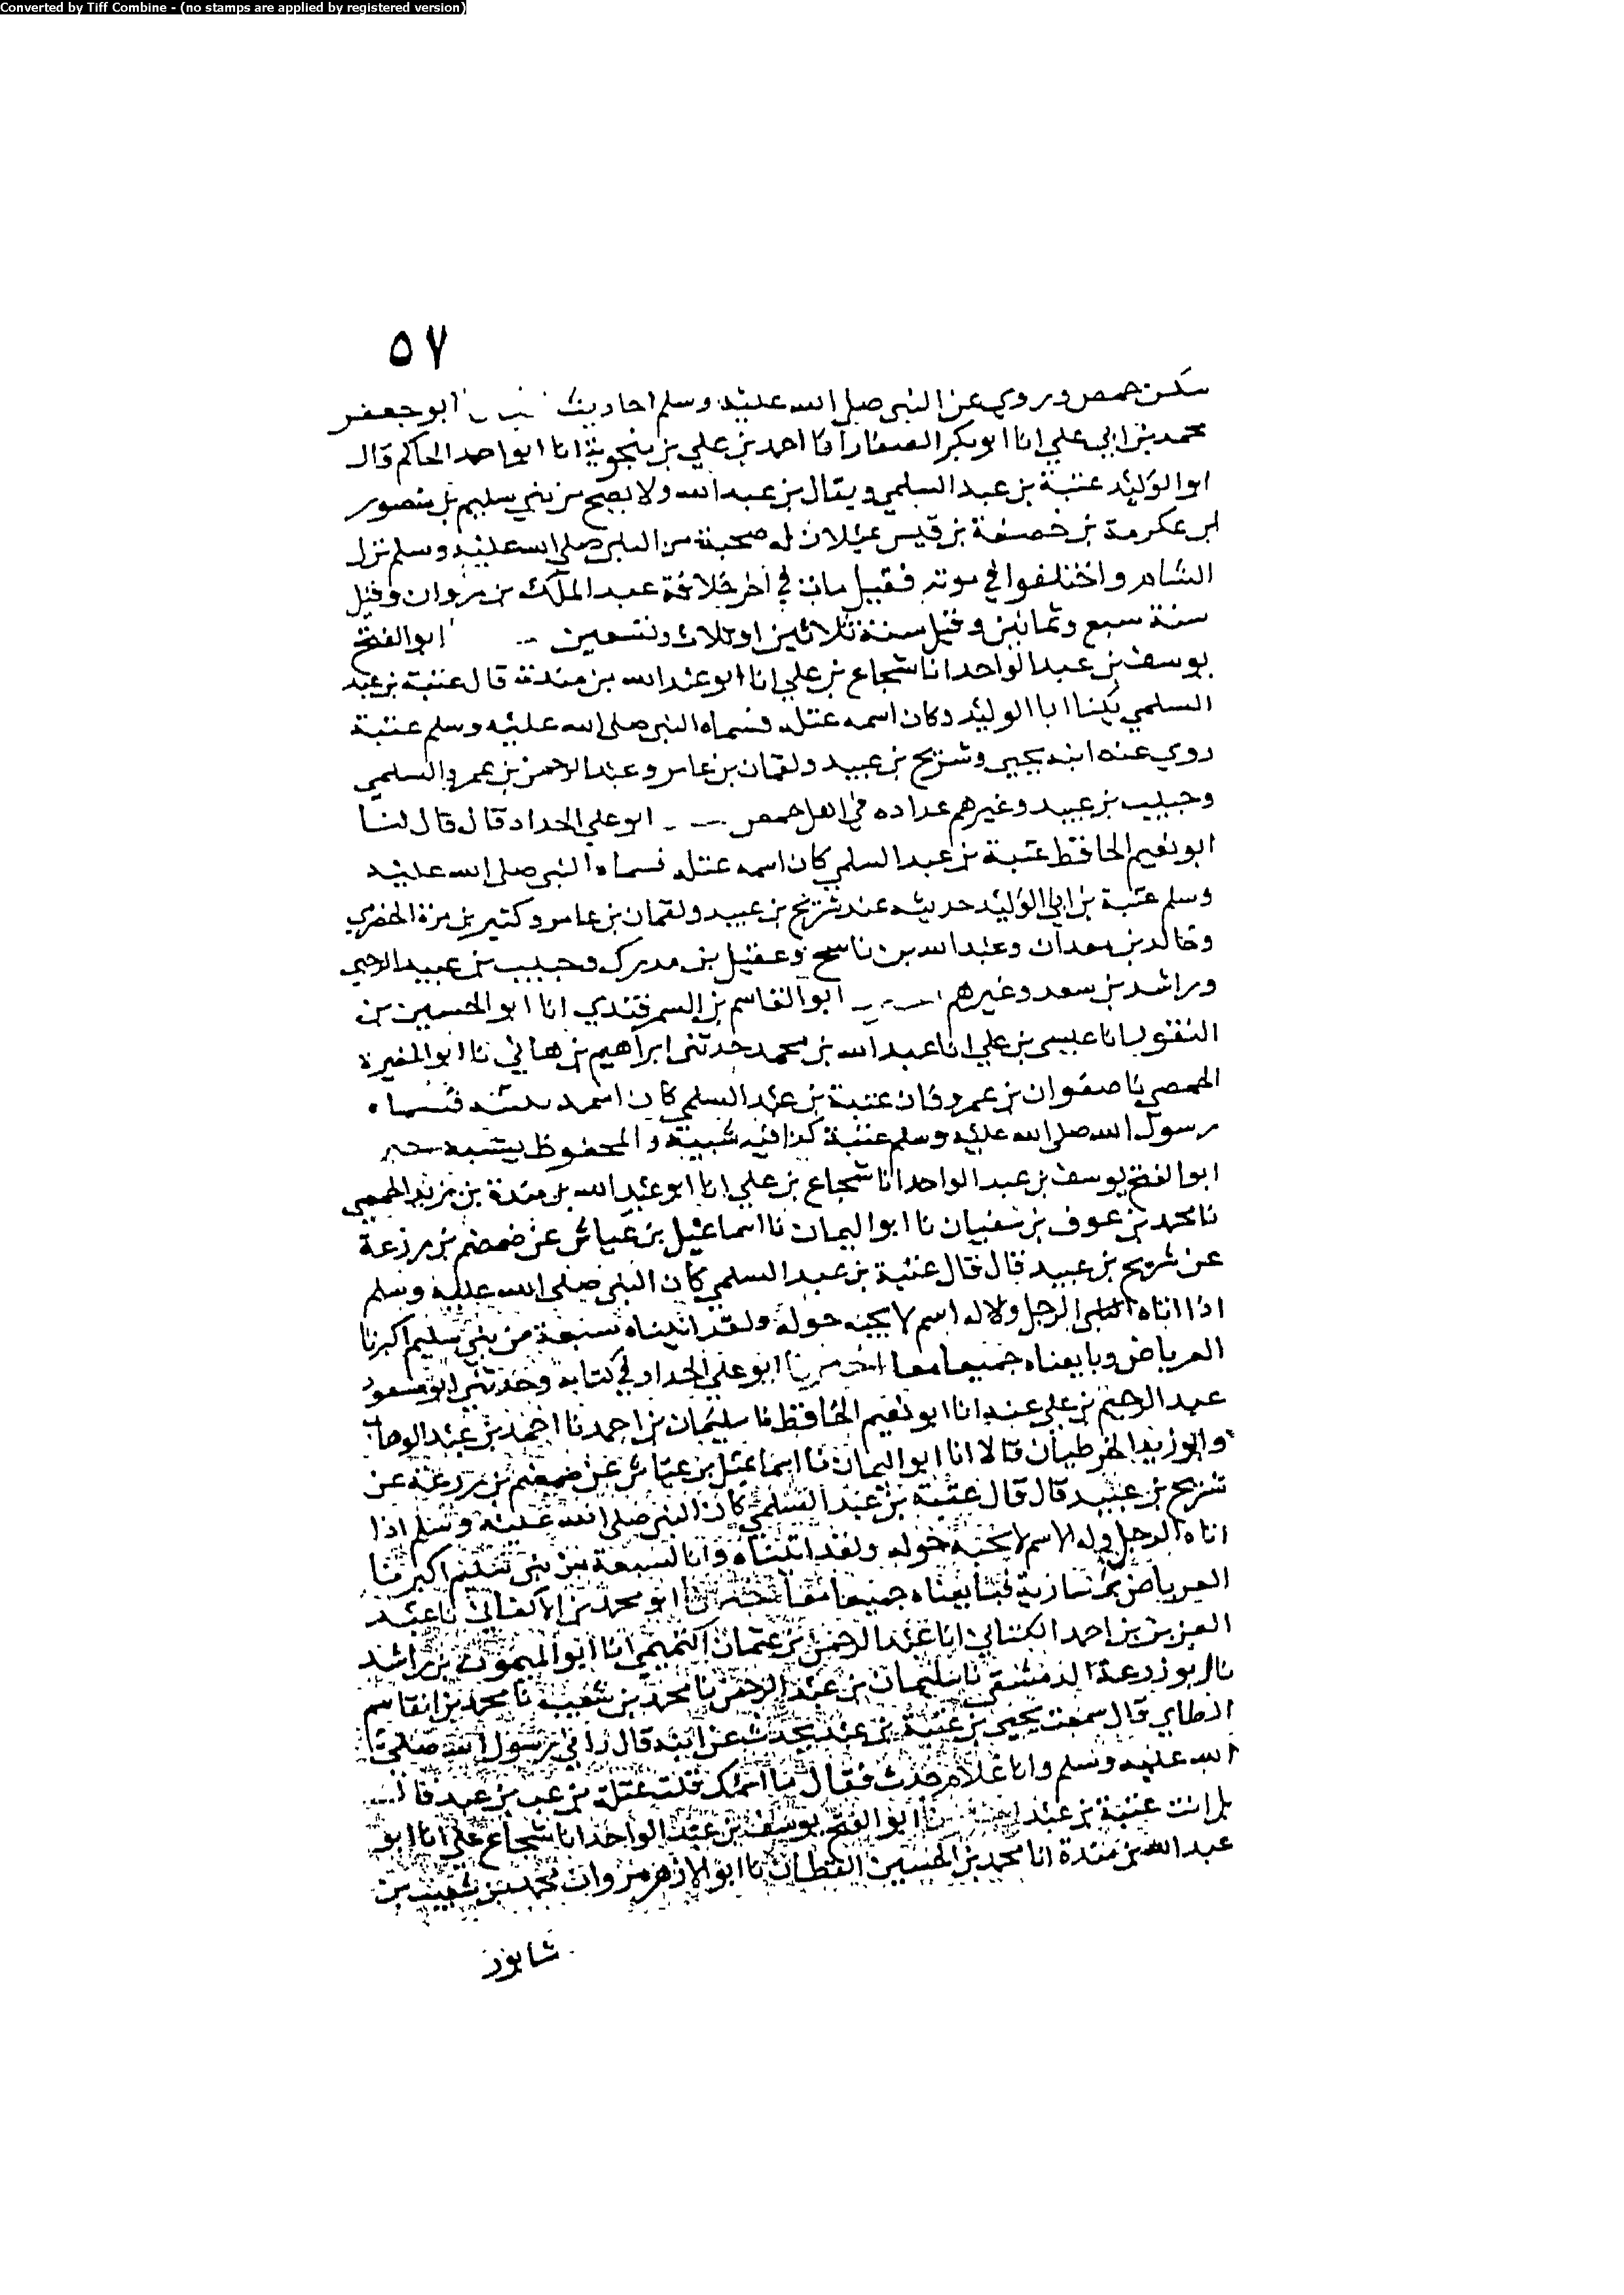 Converted by Tiff Combine - (no stamps are applied by registered version)
٥٧
سكن حمص وروي عن النبي صلى الله عليه وسلم احاديث ابو جعفر
محمد بن ابي علي انا ابو بكر الصفار انا احمد بن علي بن منجويه انا ابو احمد الحاكم قال
ابو الوليد عتبة بن عبد السلمي ويقال بن عبد الله ولا يصح من بني سليم بن منصور
ابن عكرمة بن خصفة بن قيس عيلان له صحبة من النبي صلى الله عليه وسلم نزل
الشام واختلفوا في موته فقيل مات في اخر خلافة عبد الملك بن مروان وقيل
سنة سبع وثمانين وقيل سنة ثلاثين او ثلاث وتسعين ابو الفتح
يوسف بن عبد الواحد انا شجاع بن علي انا ابو عبد الله بن مندة قال عتبة بن عبد
السلمي يكنا ابا الوليد وكان اسمه عتله فسماه النبي صلى الله عليه وسلم عتبة
روي عنه ابنه يحيى وشريح بن عبيد ولقمان بن عامر وعبد الرحمن بن عمرو السلمي
وحبيب بن عبيد وغيرهم عداده في اهل حمص ابو علي الحداد قال قال لنا
ابو نعيم الحافظ عتبة بن عبد السلمي كان اسمه عتله فسماه النبي صلى الله عليه
وسلم عتبة بن ابي الوليد حديثه عند شريح بن عبيد ولقمان بن عامر وكثير بن مرة الحضرمي
وخالد بن معدان وعبد الله بن ناسح وعقيل بن مدرك وحبيب بن عبيد الرحبي
وراشد بن سعد وغيرهم ابو القاسم بن السمرقندي انا ابو الحسين بن
النقور انا عيسى بن علي انا عبد الله بن محمد حدثني ابراهيم بن هاني نا ابو المغيرة
الحمصي نا صفوان بن عمرو قال عتبة بن عبد السلمي كان اسمه فسماه
رسول الله صلى الله عليه وسلم عتبة كذا فيه شبيبة والمحفوظ
ابو الفتح يوسف بن عبد الواحد انا شجاع بن علي انا ابو عبد الله بن مندة بن يزيد الحمصي
نا محمد بن عوف بن سفيان نا ابو اليمان نا اسماعيل بن عياش عن ضمضم بن زرعة
عن شريح بن عبيد قال قال عتبة بن عبد السلمي كان النبي صلى الله عليه وسلم
اذا اتاه الرجل وله اسم لا يحبه حوله ولقد اتيناه سبعة من بني سليم اكبرنا
العرباض وبايعناه جميعا معا ابو علي الحداد في كتابه وحدثني ابو مسعود
عبد الرحيم بن علي عنه انا ابو نعيم الحافظ نا سليمان بن احمد نا احمد بن عبد الوهاب
وابو زيد الحرطيان قالا انا ابو اليمان نا اسماعيل بن عياش عن ضمضم بن زرعة عن
شريح بن عبيد قال قال عتبة بن عبد السلمي كان النبي صلى الله عليه وسلم اذا
اتاه الرجل وله الاسم لا يحبه حوله ولقد اتيناه وانا لسبعة من بني سليم اكبرنا
العرباض بن سارية فبايعناه جميعا معا ابو محمد بن الاكفاني نا عبد
العزيز بن احمد الكتاني انا عبد الرحمن بن عثمان التميمي انا ابو الميمون بن راشد
نا ابو زرعة الدمشقي نا سليمان بن عبد الرحمن نا محمد بن شعيب نا محمد بن القاسم
الطاي قال سمعت يحيى بن عتبة بن عبد يحدث عن ابيه قال راني رسول الله صلى
الله عليه وسلم وانا غلام حدث فقال ما اسمك قلت عتلة بن عبد فقال
بل انت عتبة بن عبد ابو الفتح يوسف بن عبد الواحد انا شجاع علي انا ابو
عبد الله بن مندة انا محمد بن الحسين القطان نا ابو الازهر مروان محمد بن شعيب بن
شابور